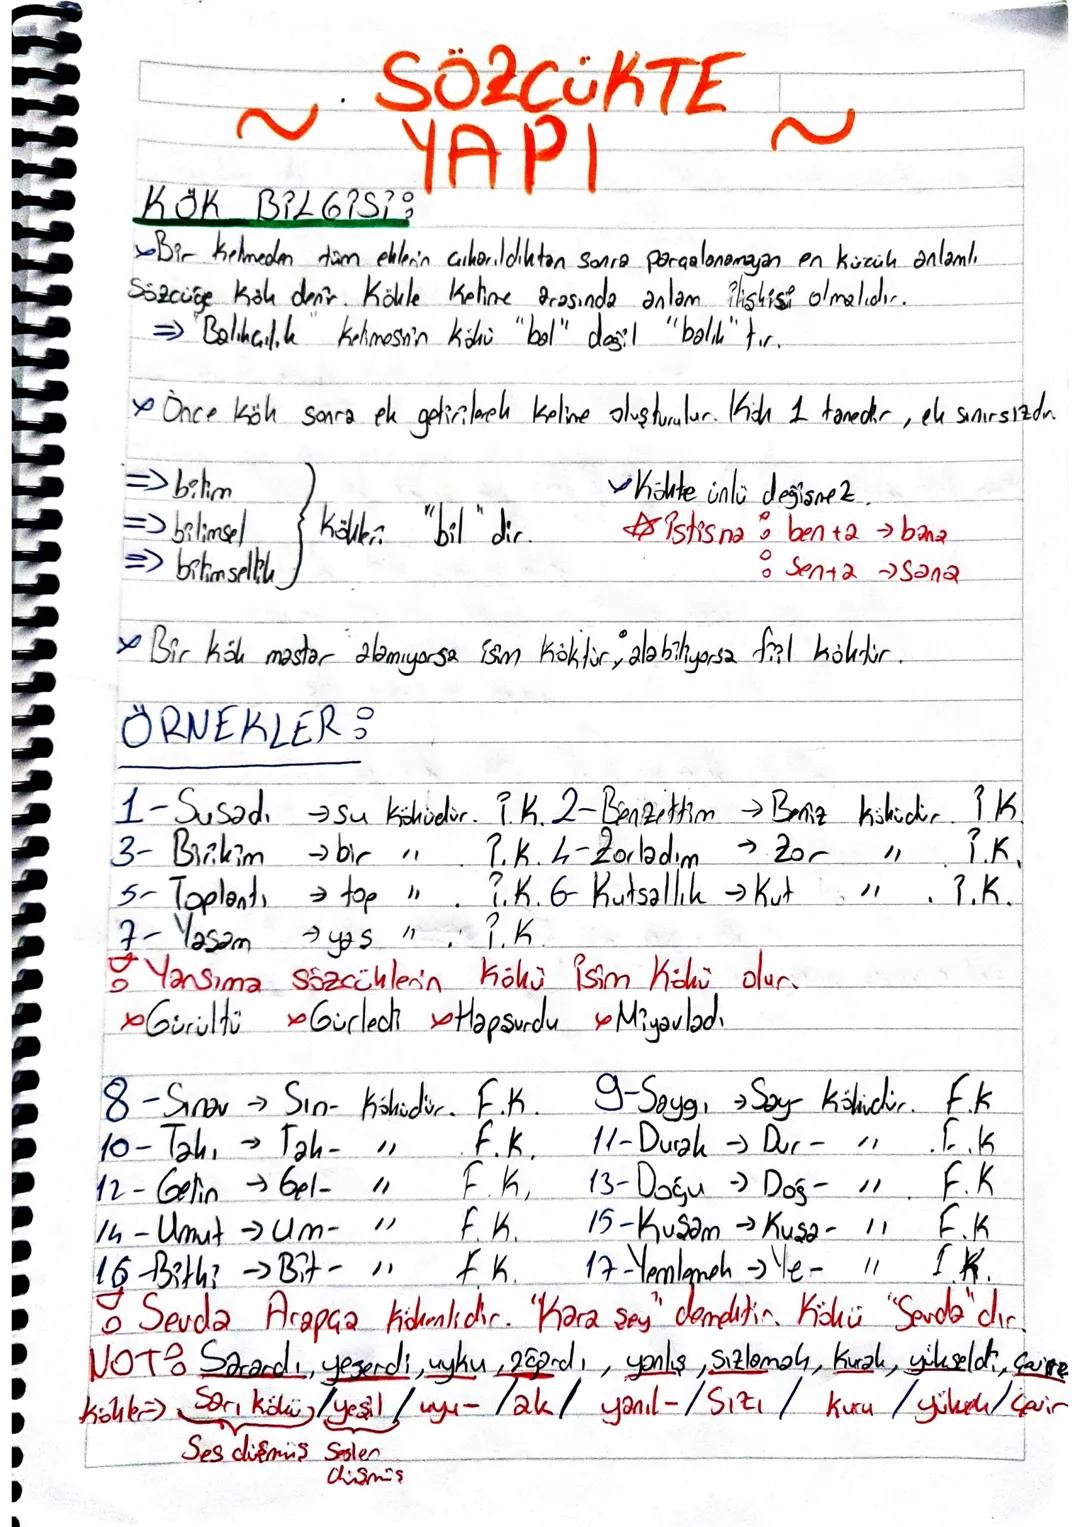 SÖZCÜKTE
~ YAPI ~
KÖK BİLGİSİ:
Bir kelimeden tüm eklerin çıkarıldıktan sonra parçalanamayan en küçük anlamlı
sözcüğe kök denir. Kökle kelime arasında anlam ilişkisi olmalıdır.
⇒ "Balıkçılık" kelimesinin kökü "bal" değil "balık" tır.
Önce kök sonra ek getirilerek kelime oluşturulur. Kök 1 tanedir, ek sınırsızdır.
⇒ bilim
⇒ bilimsel } Kökleri "bil" dir.
⇒ bilimsellik
Kökte ünlü değişmez.
☆ İstisna : ben+a → bana
: Sen+a → sana
Bir kök mastar alamıyorsa isim köktür, alabiliyorsa fiil köktür.
ÖRNEKLER :
1- Susadı → su köküdür. İ.K. 2- Benzettim → Beniz köküdür. İ.K
3- Birikim → bir " . İ.K. 4- Zorladım → Zor " . İ.K.
5- Toplantı → top " . İ.K. 6- Kutsallık → Kut " . İ.K.
7- Yaşam → yaş " . İ.K.
Yansıma sözcüklerin kökü isim kökü olur.
Gürültü Gürledi Hapşurdu Miyavladı
8- Sınav → Sın- köküdür. F.K. 9- Saygı → Say- köküdür. F.K
10- Takı → Tak- " F.K. 11- Durak → Dur- " . F.K
12- Gelin → Gel- " F.K. 13- Doğu → Doğ- " . F.K
14- Umut → Um- " F.K. 15- Kuşam → Kuşa- " F.K
16- Bitki → Bit- " F.K. 17- Yemlemek → Ye- " İ.K.
Sevda Arapça kökenlidir. "Kara şey" demektir. Kökü "Sevda" dır.
NOT: Sarardı, yeşerdi, uyku, ağardı, yanlış, sızlamak, kurak, yükseldi, çevre
Kökler ⇒ Sarı kökü, / yeşil / uyu- / ak / yanıl- / sızı / kuru / yüksek / çevir
Ses düşmüş Sesler
düşmüş